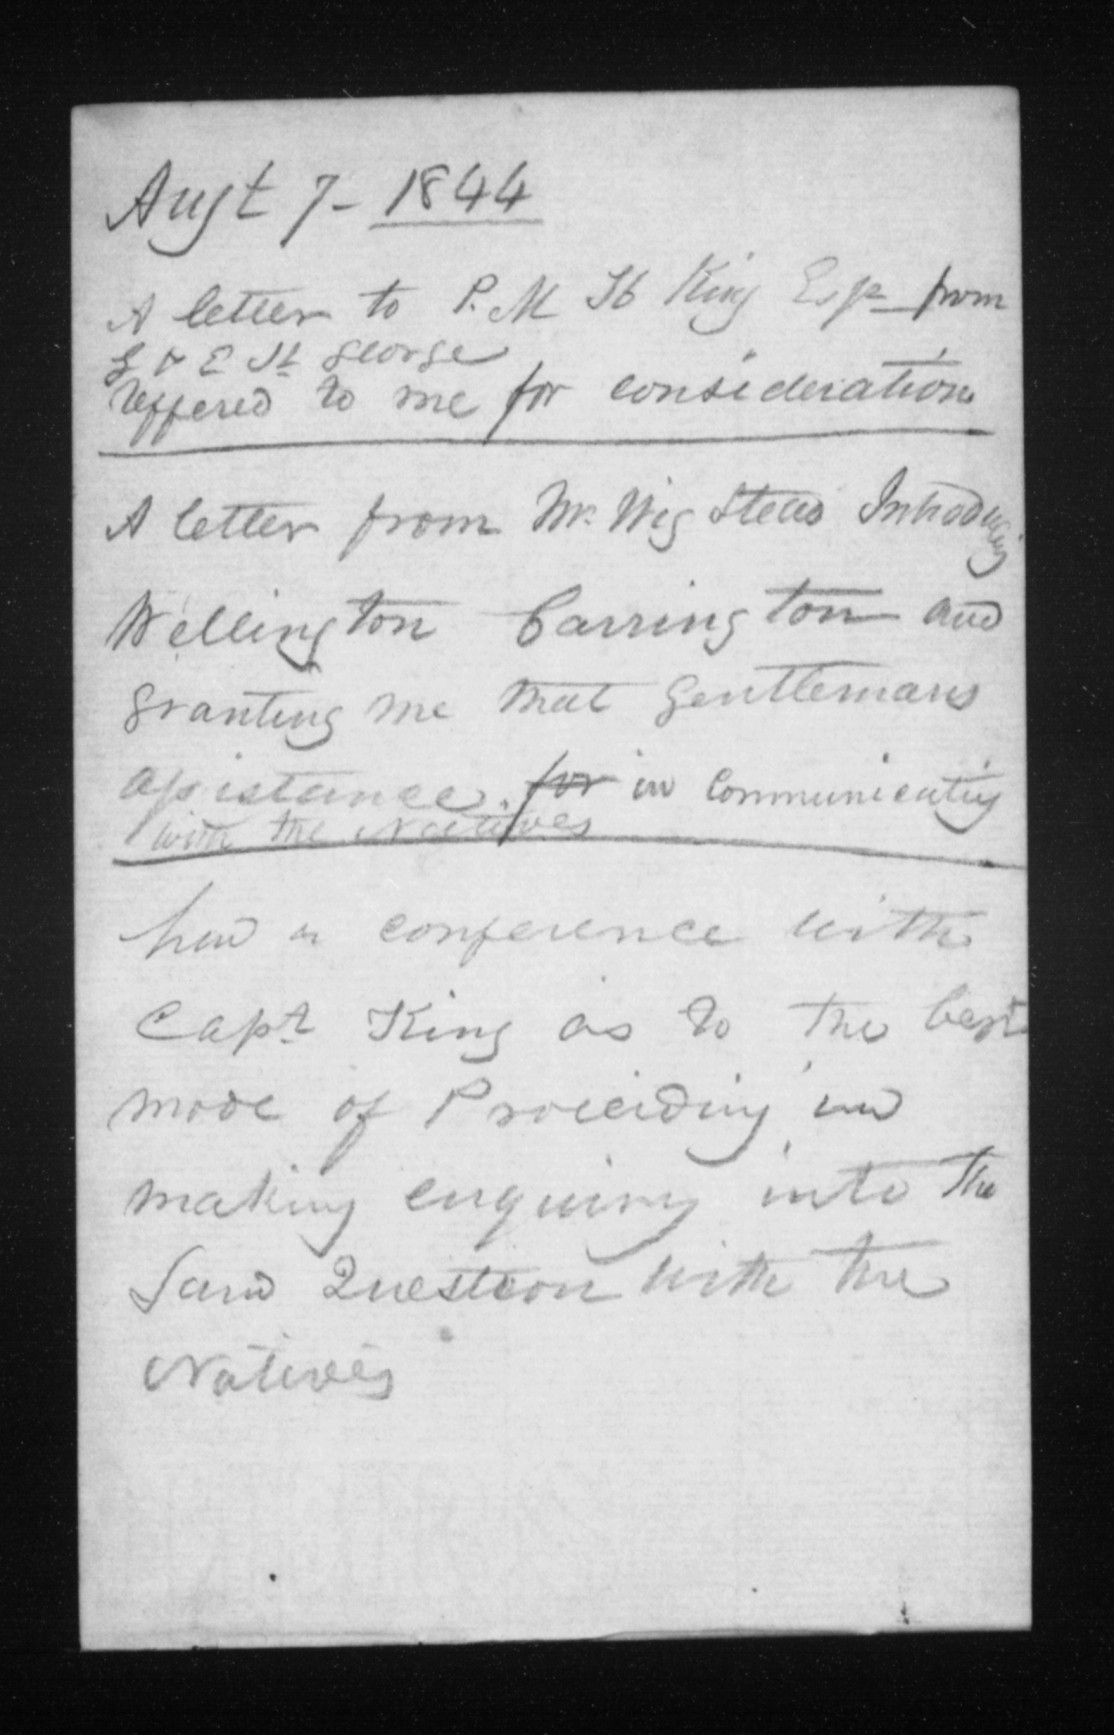 Augt 7 - 1844
A letter to P. M H King Esqr from
J & E St George
reffered to me for consideration
A letter from Mr. Wig Stead Introducing
Wellington Carrington and
granting me that gentlemans
assistance. for in Communicating
with the Natives
had a conference with
Capt King as to the best
mode of Proceiding in
making enquiry into the
Land Question with the
Natives